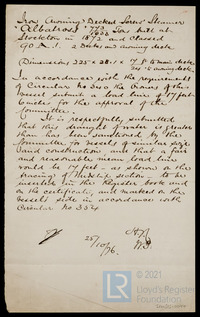 Iron Awning Decked Screw Steamer
"Albatross" 773/1033 Tons built at
Stockton in 1872 and Classed
90 A.1. 2 Decks and awning deck
Dimensions 225 × 28.1 × 17.5 to main deck
In accordance with the requirements
of Circular No 340 the Owners of this
Vessel submit a load line of 17 feet
6 inches for the approval of the
Committee.
It is respectfully submitted
that this draught of water is greater
than has been sanctioned by the
Committee for vessels of similar size
and construction and that a fair
and reasonable mean load line
would be 17 feet as shown on the
tracing of Midship section to be
inserted in the Register book and
on the certificate, and marked on the
Vessel's side in accordance with
Circular No 334
25/10/76.
© 2021
Lloyd's Register
Foundation